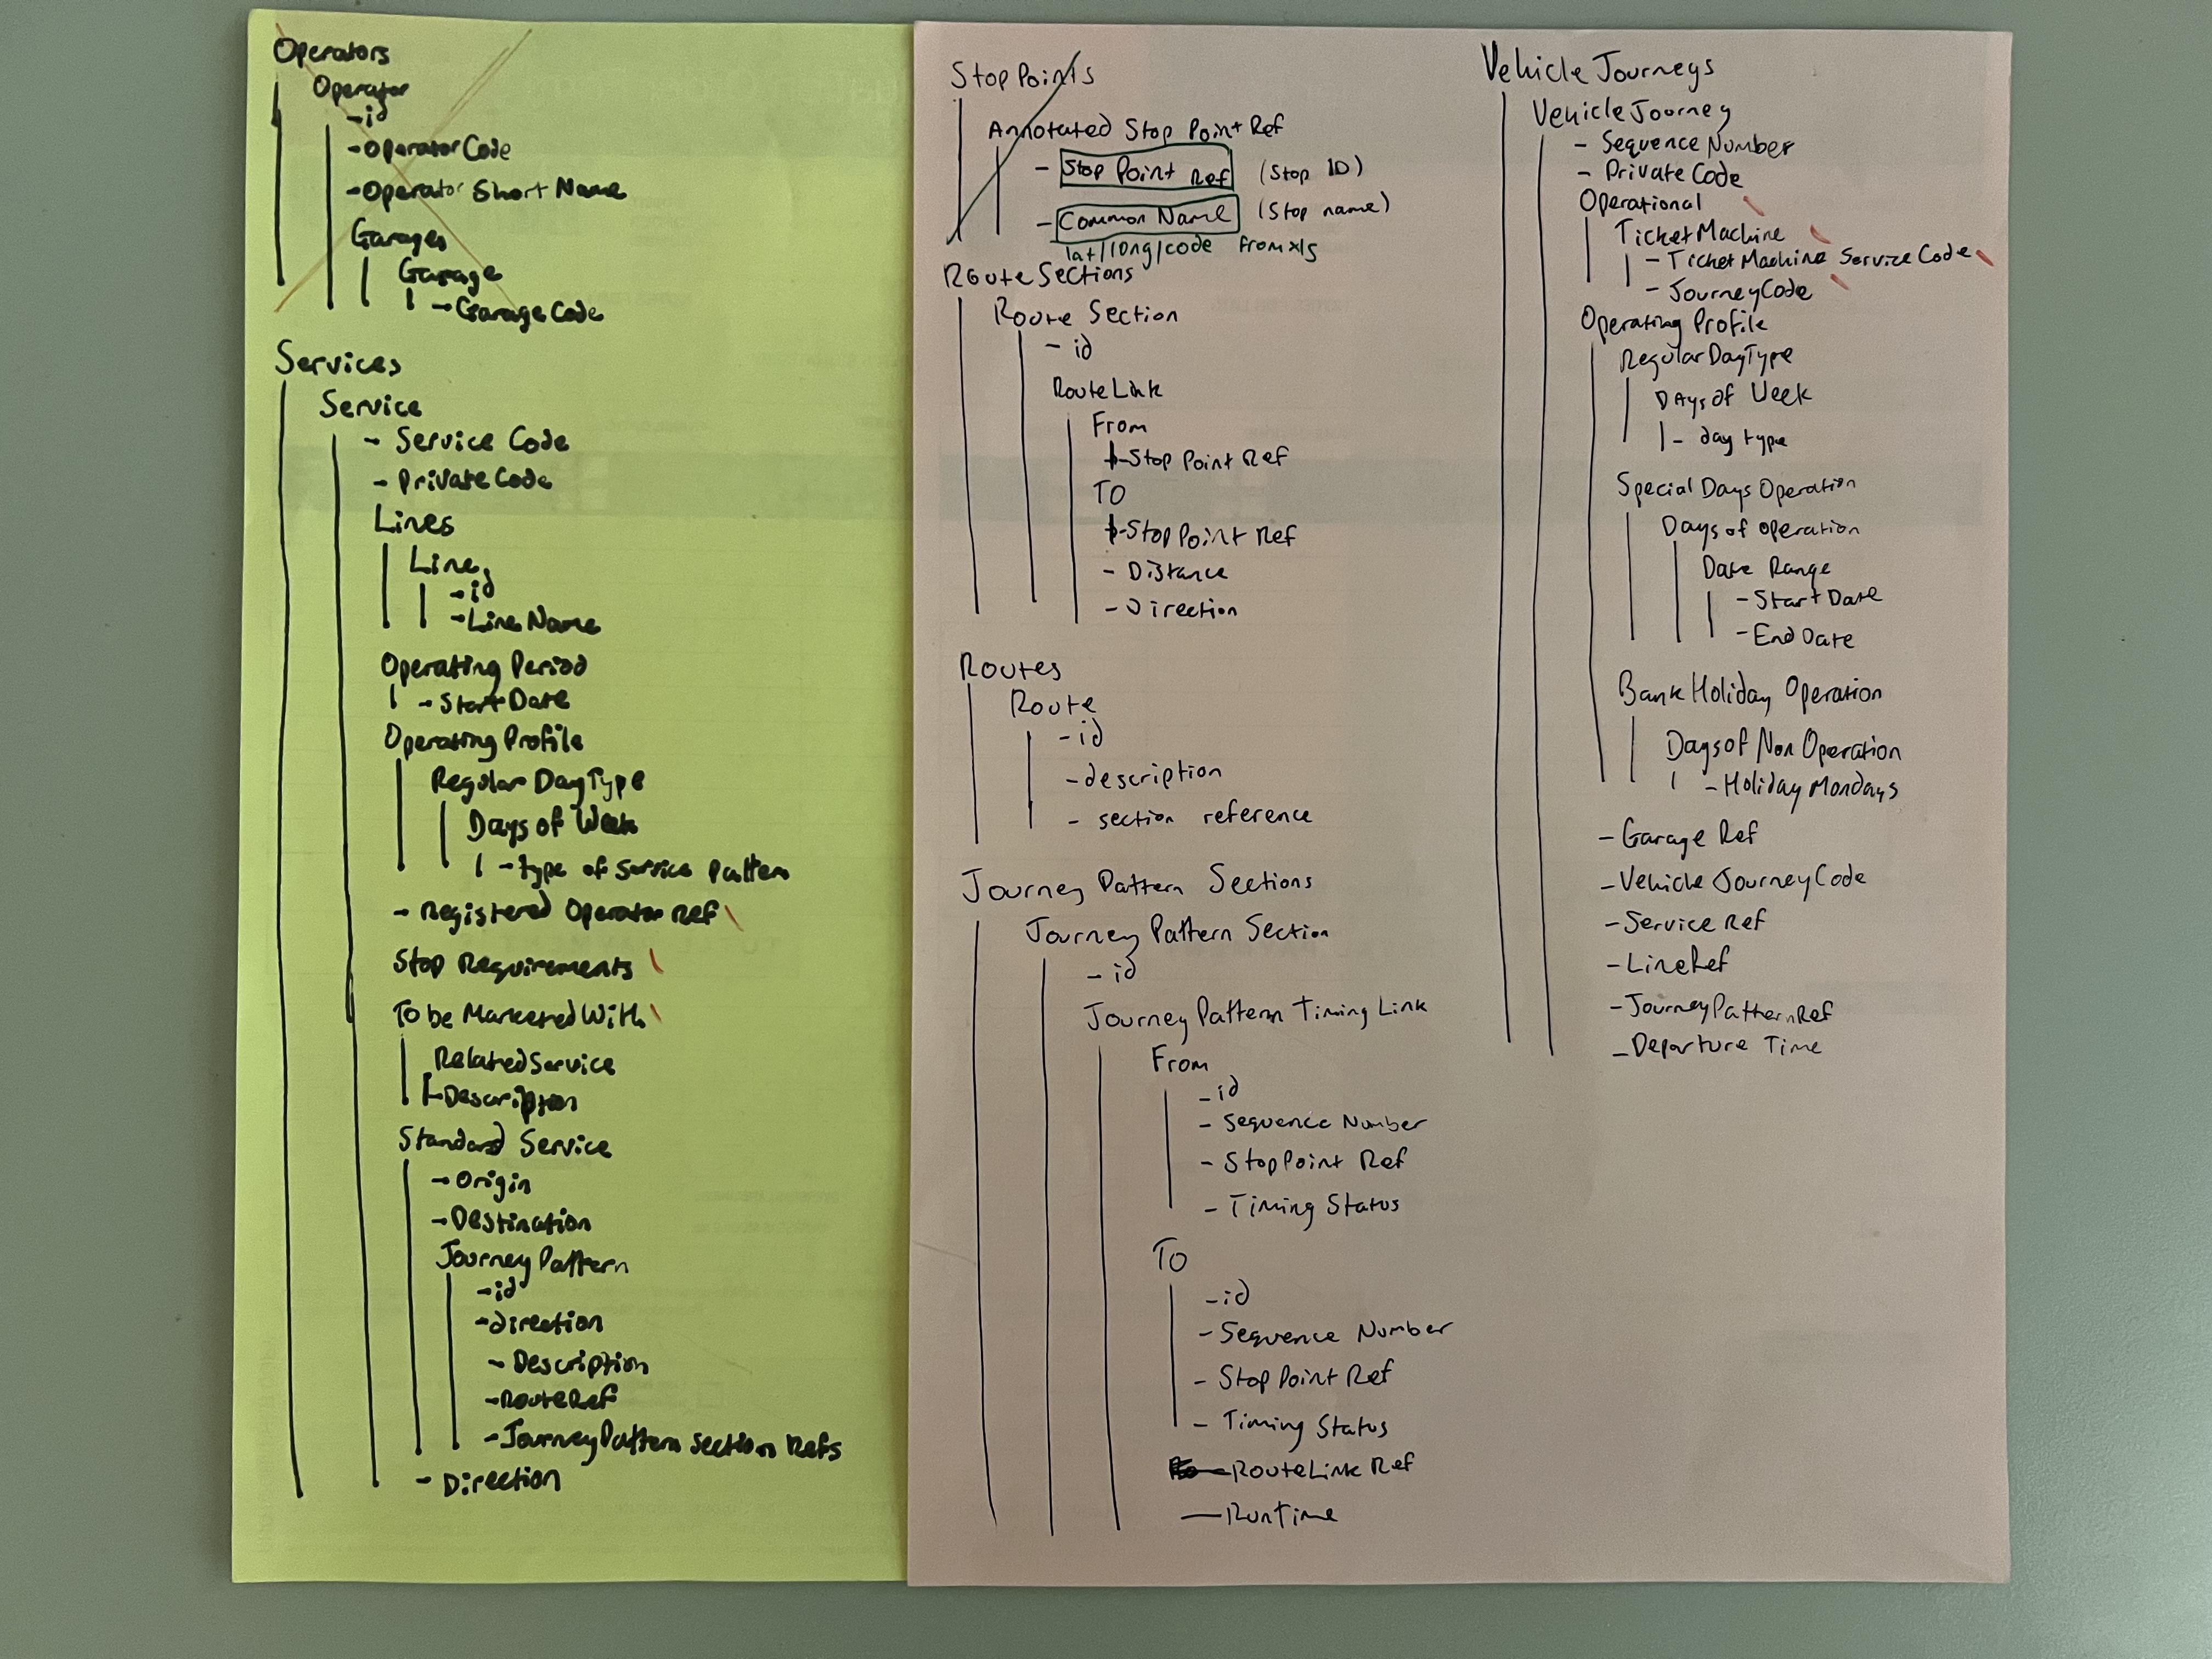 Operators
Operator
- id
- Operator Code
- Operator Short Name
Garages
Garage
- Garage Code
Services
Service
- Service Code
- Private Code
Lines
Line
- id
- Line Name
Operating Period
- Start Date
Operating Profile
Regular DayType
Days of Week
- type of service pattern
- Registered Operator Ref
Stop Requirements
To be Marketed With
Related Service
- Description
Standard Service
- Origin
- Destination
Journey Pattern
- id
- direction
- Description
- RouteRef
- Journey Pattern Section Refs
- Direction
Stop Points
Annotated Stop Point Ref
- Stop Point Ref (Stop ID)
- Common Name (Stop name)
lat/long/code from xls
Route Sections
Route Section
- id
Route Link
From
- Stop Point Ref
TO
- Stop Point Ref
- Distance
- Direction
Routes
Route
- id
- description
- section reference
Journey Pattern Sections
Journey Pattern Section
- id
Journey Pattern Timing Link
From
- id
- Sequence Number
- StopPoint Ref
- Timing Status
TO
- id
- Sequence Number
- Stop Point Ref
- Timing Status
- RouteLink Ref
- RunTime
Vehicle Journeys
Vehicle Journey
- Sequence Number
- Private Code
Operational
Ticket Machine
- Ticket Machine Service Code
- Journey Code
Operating Profile
Regular DayType
Days of Week
- day type
Special Days Operation
Days of operation
Date Range
- Start Date
- End Date
Bank Holiday Operation
Days of Non Operation
- Holiday Mondays
- Garage Ref
- Vehicle Journey Code
- Service Ref
- Line Ref
- Journey Pattern Ref
- Departure Time